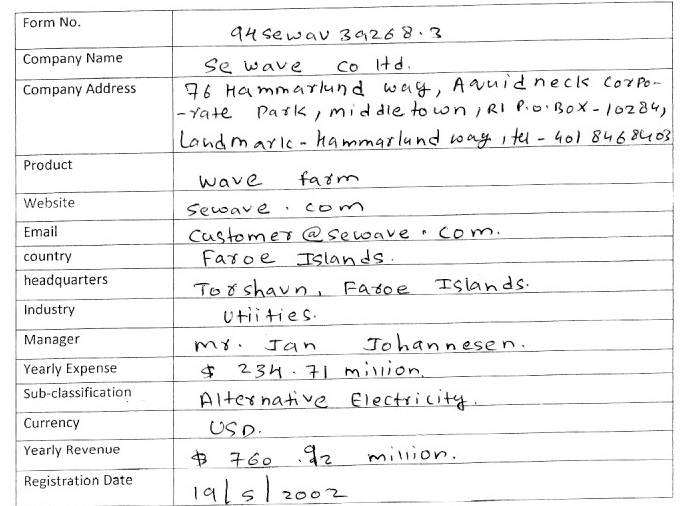 Form No. 94sewav39268.3
Company Name Se wave co ltd.
Company Address 76 Hammarlund way, Aquidneck Corpo-
-rate Park, middletown, RI P.O.BOX-10284,
Landmark - hammarlund way, tel - 401 8468403
Product wave farm
Website sewave.com
Email Customer@sewave.com.
country Faroe Islands.
headquarters Torshavn, Faroe Islands.
Industry Utiities.
Manager mr. Jan Johannesen.
Yearly Expense $ 234.71 million.
Sub-classification Alternative Electricity.
Currency USD.
Yearly Revenue $ 760.92 million.
Registration Date 19/5/2002